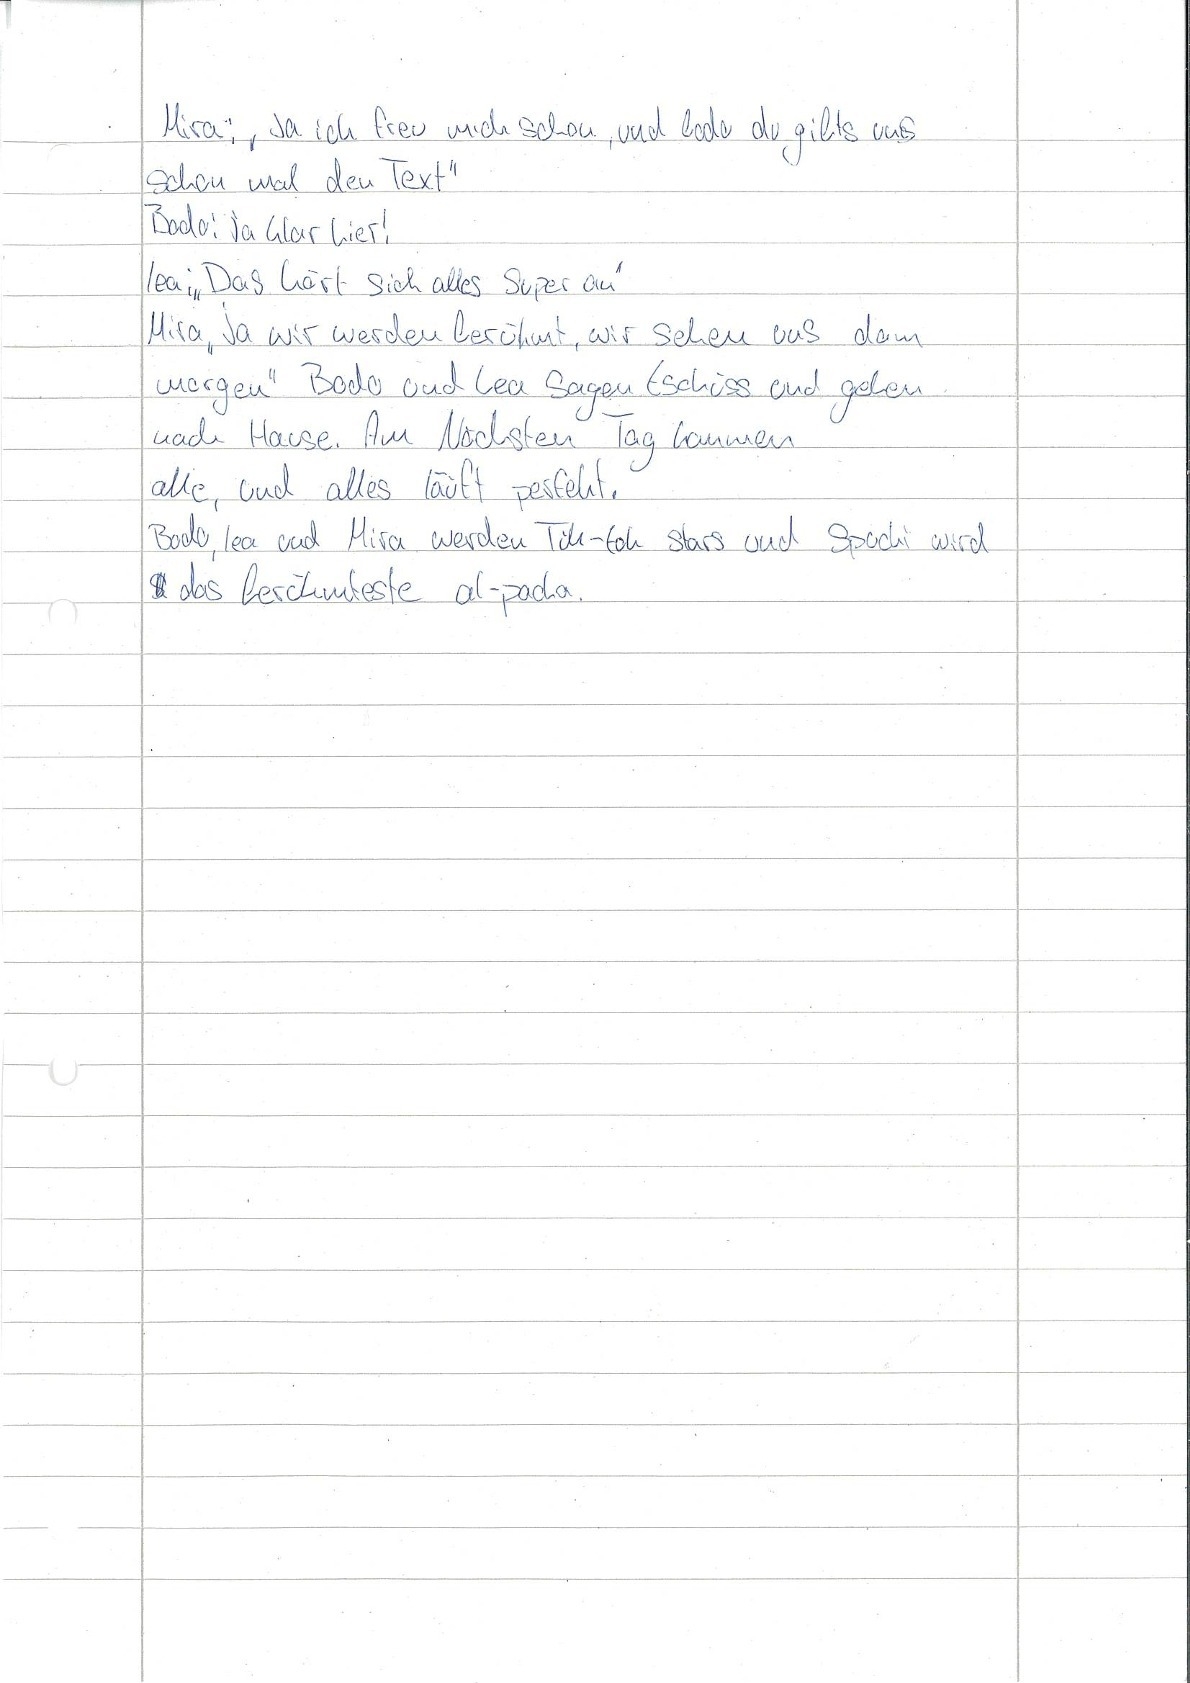 Mira: „Ja ich freu mich schon, und bodo du gibts uns
schon mal den Text"
Bodo: Ja klar hier!
lea: „Das hört sich alles Super an"
Mira „Ja wir werden berühmt, wir sehen uns dan
morgen" Bodo und Lea Sagen tschüss und gehen
nach Hause. Am Nächsten Tag kommen
alle, und alles läuft perfekt.
Bodo, lea und Mira werden Tik-tok stars und Spucki wird
das berühmteste al-packa.